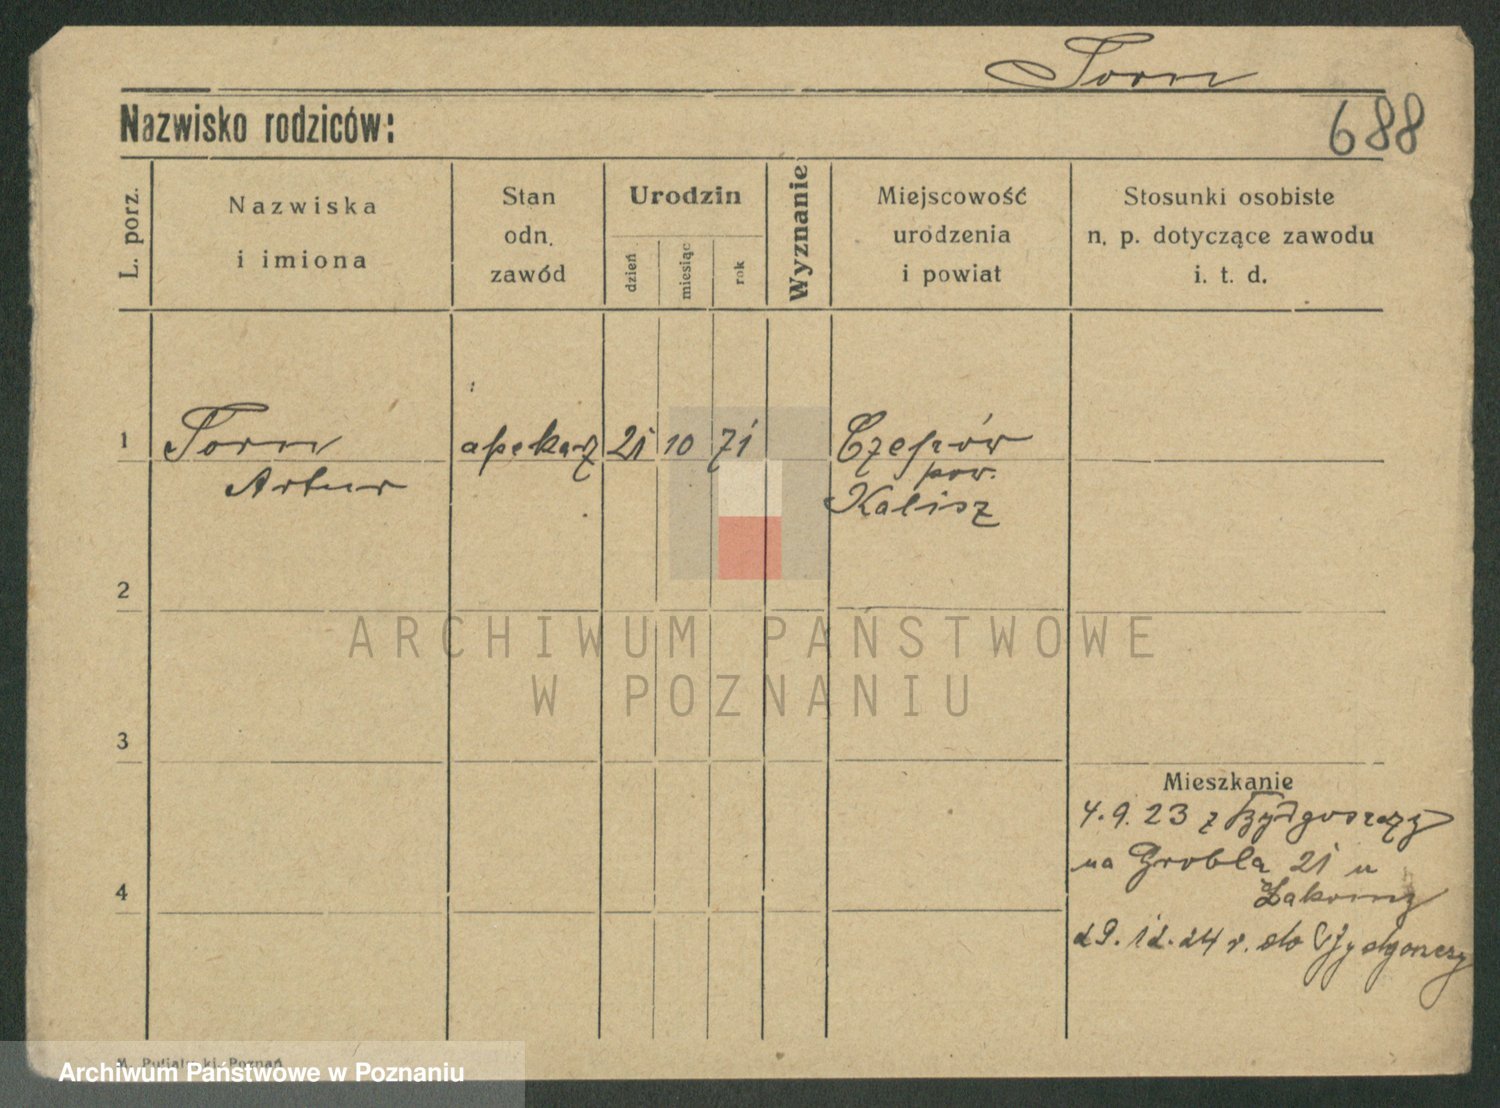 Torn
Nazwisko rodziców:
688
L. porz.
Nazwiska
i imiona
Stan
odn.
zawód
Urodzin
dzień
miesiąc
rok
Wyznanie
Miejscowość
urodzenia
i powiat
Stosunki osobiste
n. p. dotyczące zawodu
i. t. d.
1
Torn
Artur
apekarz
21
10
71
pow.
Kalisz
2
ARCHIWUM PAŃSTWOWE
W POZNANIU
3
Mieszkanie
4.9.23 z Bydgoszczy
na Grobla 21 u
4
29.12.24 r. do Bydgoszczy
Poznań
Archiwum Państwowe w Poznaniu